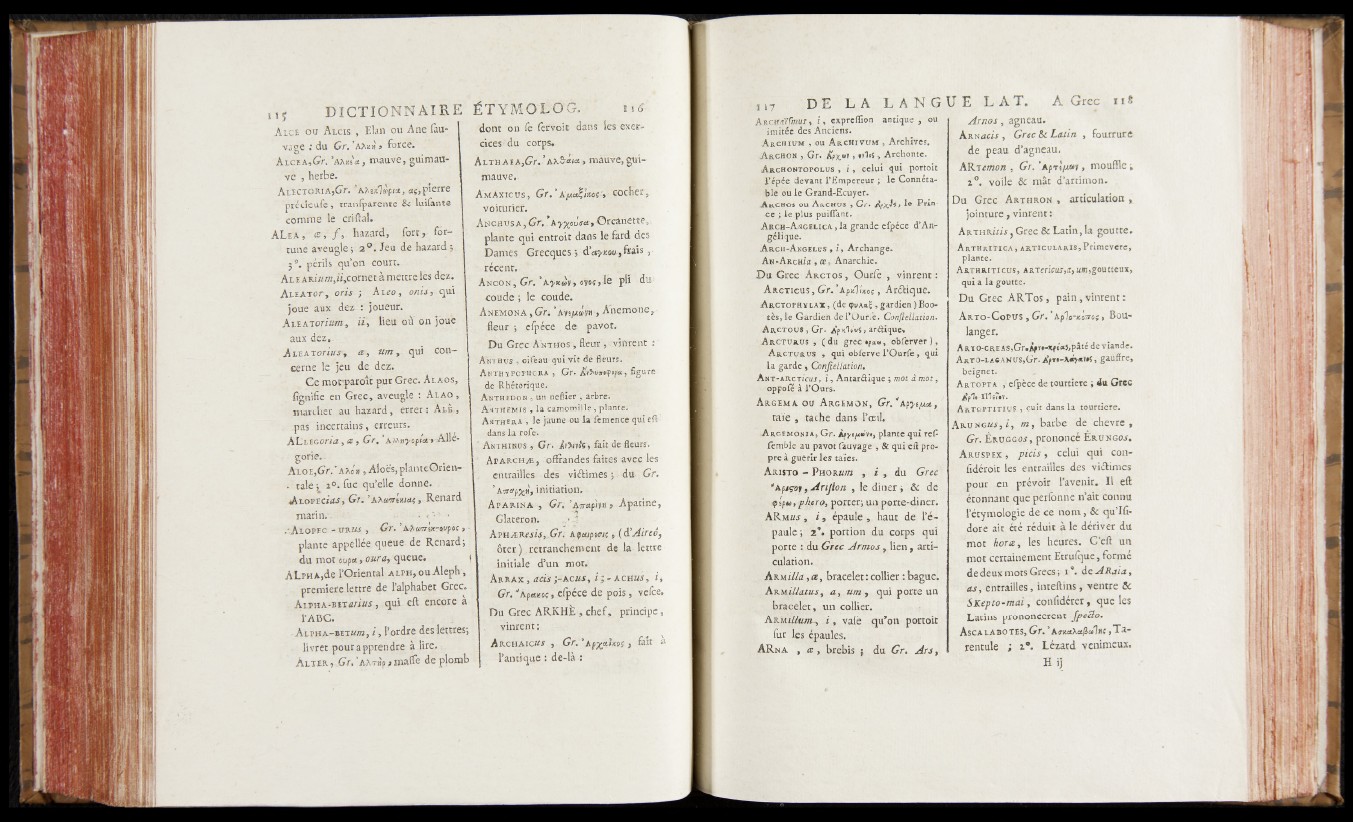 115 DICTIONNAIRE
ALCE OU ALCIS , Elan ou Ane ſau-
vage : du Gr. Ἀλκὴ, force.
ALCEA, Gr. Ἀλκέα, mauve, guimau-
ve , herbe.
ALECTORIA, Gr. pierre
précieuſe, tranſparente & luiſante
comme le criſtal.
ALEA, æ, f, hazard, ſort, for-
tune aveugle; 2°. Jeu de hazard;
3°. périls qu'on court.
ALEARium, ii, cornet à mettre les dez.
ALEATOr, oris ; ALEO, onis, qui
joue aux dez : joueur.
ALEATOrium, ii, lieu où on joue
aux dez.
ALEATOrius, a, um, qui con-
cerne le jeu de dez.
Ce mot paroît pur Grec. ALAOS,
ſignifie en Grec, aveugle : ALAO,
marcher au hazard, errer : ALÊ,
pas incertains, erreurs.
ALLEGORIA, æ, Gr. Allé-
gorie.
ALOE, Gr. Ἀλόη, Aloës, plante Orien-
tale; 2°. ſuc qu'elle donne.
ALOPECias, Gr. Renard
marin.
ALOPEC - URUS, Gr.
plante appellée queue de Renard;
du mot ουρα, oura, queue.
ALPHA, de l'Oriental ALPH, ou Aleph,
premiere lettre de l'alphabet Grec.
ALPHA-BETarius, qui eſt encore à
l'ABC.
ALPHA-BETum, i, l'ordre des lettres;
livret pour apprendre à lire.
ALTER, Gr. maſſe de plomb
ÉTYMOLOG. 116
dont on ſe ſervoit dans les exer-
cices du corps.
ALTHAEA, Gr. mauve, gui-
mauve.
AMAXICUS, Gr. cocher,
voiturier.
ANCHUSA, Gr. Orcanette,
plante qui entroit dans le fard des
Dames Grecques; frais,
récent.
ANCON, Gr. le pli du
coude ; le coude.
ANEMONA, Gr. Anemone,
fleur ; eſpéce de pavot.
Du Grec ANTHOS, fleur, vinrent :
ANTHUS, oiſeau qui vit de fleurs.
ANTHYPOPHORA, Gr. figure
de Rhétorique.
ANTHEDON, un neflier, arbre.
ANTHEMIS, la camomille, plante.
ANTHERA, le jaune ou la ſemence qui eſt
dans la roſe.
ANTHINUS, Gr. fait de fleurs.
APARCHÆ, offrandes faites avec les
entrailles des victimes ; du Gr.
initiation.
APARINA, Gr. Apatine,
Glateron.
APHÆResis, Gr. (d'Aireô,
ôter) retranchement de la lettre
initiale d'un mot.
ARRAX, acis ;-ACUS, i ; - ACHUS, i,
Gr. Ἄρακος, eſpéce de pois, veſce.
Du Grec ARKHÈ, chef, principe,
vinrent :
ARCHAICUS, Gr. fait à
l'antique : de-là :
117 DE LA LANGUE LAT. A Grec 118
ARCHAÏſmus, i, expreſſion antique, ou
imitée des Anciens.
ARCHIUM, ou ARCHIVUM, Archives.
ARCHON, Gr. Archonte.
ARCHONTOPOLUS, i, celui qui portoit
l'épée devant l'Empereur ; le Connéta-
ble ou le Grand-Ecuyer.
ARCHOS ou ARCHUS, Gr. le Prin-
ce ; le plus puiſſant.
ARCH-ANGELICA, la grande eſpéce d'An-
gélique.
ARCH-ANGELUS, i, Archange.
AN-ARCHia, æ, Anarchie.
Du Grec ARCTOS, Ourſe, vinrent :
ARCTICUS, Gr. Arctique.
ARCTOPHYLAX, (de φυλαξ, gardien) Boo-
tès, le Gardien de l'Ourſe. Conſtellation.
ARCTOUS, Gr. arctique.
ARCTURUS, (du grec obſerver),
ARCTURUS, qui obſerve l'Ourſe, qui
la garde, Conſtellation.
ANT-ARCTICUS, i, Antarctique ; mot à mot,
oppoſé à l'Ours.
ARGEMA OU ARGEMON, Gr.
taie, tache dans l'œil.
ARGEMONIA, Gr. plante qui reſ-
ſemble au pavot ſauvage, & qui eſt pro-
pre à guérir les taies.
ARISTO - PHORum, i, du Grec
Ariſton, le diner ; & de
phero, porter; un porte-diner.
ARMus, i, épaule, haut de l'é-
paule ; 2°. portion du corps qui
porte : du Grec Armos, lien, arti-
culation.
ARMilla, æ, bracelet : collier : bague.
ARMillatus, a, um, qui porte un
bracelet, un collier.
ARMillum, i, vaſe qu'on portoit
ſur les épaules.
ARNA, æ, brebis ; du Gr. Ars,
Arnos, agneau.
ARNacis, Grec & Latin, fourrure
de peau d'agneau.
ARTemon, Gr. mouffle ;
2°. voile & mât d'artimon.
Du Grec ARTHRON, articulation,
jointure, vinrent :
ARTHRitis, Grec & Latin, la goutte.
ARTHRITICA, ARTICULARIS, Primevere,
plante.
ARTHRITICUS, ARTericus, a, um, goutteux,
qui a la goutte.
Du Grec ARTos, pain, vinrent :
ARTO-COPUS, Gr. Bou-
langer.
ARTO-CREAS, Gr. pâté de viande.
ARTO-LAGANUS, Gr. gauffre,
beignet.
ARTOPTA, eſpéce de tourtiere ; du Grec
ARTOPTITIUS, cuit dans la tourtiere.
ARUNGUS, i, m, barbe de chevre,
Gr. ÊRUGGOS, prononcé ÊRUNGOS.
ARUSPEX, picis, celui qui con-
ſidéroit les entrailles des victimes
pour en prévoir l'avenir. Il eſt
étonnant que perſonne n'ait connu
l'étymologie de ce nom, & qu'Iſi-
dore ait été réduit à le dériver du
mot horæ, les heures. C'eſt un
mot certainement Etruſque, formé
de deux mots Grecs; 1°. de ARaia,
as, entrailles, inteſtins, ventre &
SKepto-mai, conſidérer, que les
Latins prononcerent ſpecto.
ASCALABOTES, Gr. Ta-
rentule ; 2°. Lézard venimeux.
H ij